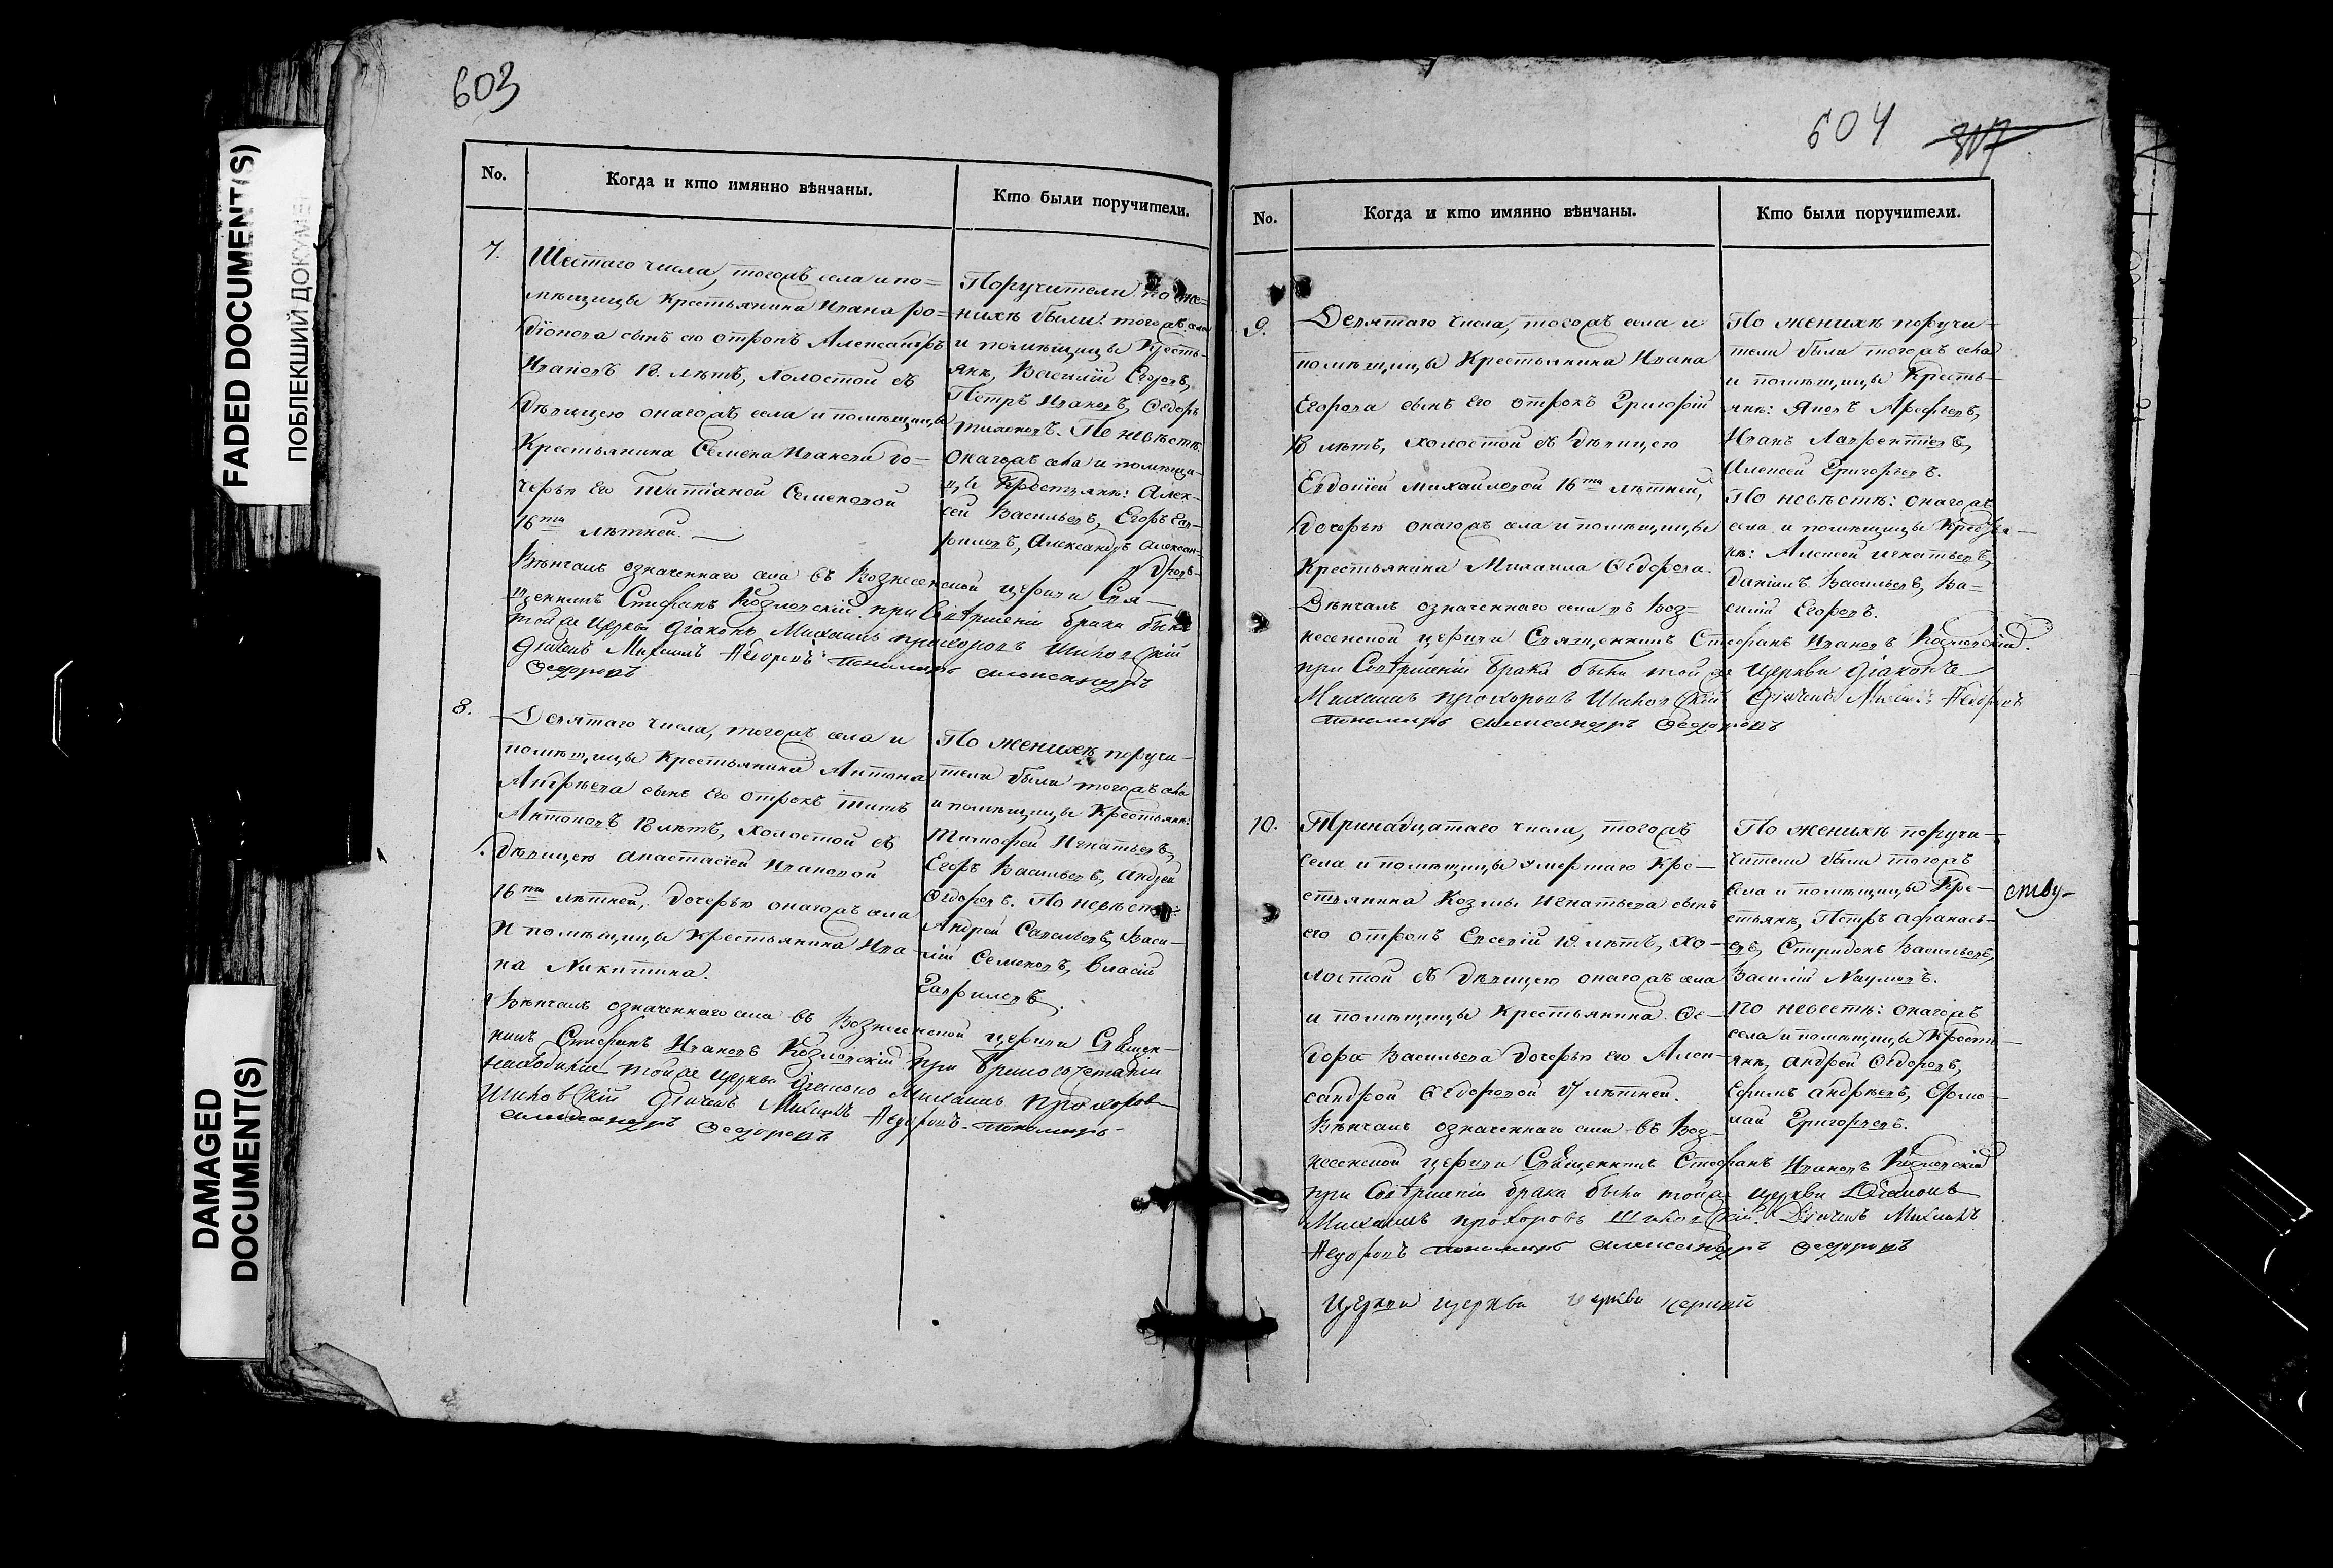 FADED DOCUMENT(S)
ПОБЛЕКШИЙ ДОКУМЕ
DAMAGED
DOCUMENT(S)
603
No.
Когда и кто имянно вѣнчаны.
Кто были поручители.
7.
Шестаго числа, тогожъ села и по=
мѣщицы Крестьянина Ивана ро=
діонова сынъ его отрокъ Александръ
Ивановъ 18. лѣтъ, холостой съ
дѣвицею онагожъ села и помѣщицы
Крестьянина Семена Иванова до=
черью его Татіаной Семеновой
16ти лѣтней.
Вѣнчалъ означеннаго села въ Вознесенской церкви Свя-
щенникъ Стефанъ Козловскій при Совѣршеніи брака были
тойже Церкви Діаконъ Михаилъ прохоровъ
Дьячекъ Михаилъ Пономарь александръ
Ѳедоровъ
Поручители по же=
нихѣ были: тогожъ села
и помѣщицы Кресть-
янѣ, Василій Егоровъ,
Петръ Ивановъ, Ѳедоръ
тихоновъ. По невѣстѣ:
онагожъ села и помѣщи-
цы Крестьянѣ: Алек-
сѣй Васильевъ, Егоръ Гав-
риловъ, Александръ Алексан-
дровъ
8.
Девятаго числа, тогожъ села и
помѣщицы Крестьянина Антона
Андрѣева сынъ его отрокъ титъ
Антоновъ 18 лѣтъ, холостой съ
дѣвицею анастасіей Ивановой
16ти лѣтней, дочерью онагожъ села
и помѣщицы Крестьянина Ива-
на Никитина.
Вѣнчалъ означеннаго села въ Вознесенской церкви Священ-
никъ Стефанъ Ивановъ Козловскій при бракосочетаніи
находились тойже Церкви Діаконъ Михаилъ прохоров
Дьячекъ Михаилъ пономарь
александръ Ѳедоровъ
По женихѣ поручи-
тели были тогожъ села
и помѣщицы Крестьянѣ:
Тимофей Игнатьевъ,
Егоръ Васильевъ, андрей
Ѳедоровъ. По невѣстѣ:
Андрей Савельевъ, Васи-
лій Семеновъ, власій
Гавриловъ.
604 307
No.
Когда и кто имянно вѣнчаны.
Кто были поручители.
9.
Девятаго числа, тогожъ села и
помѣщицы Крестьянина Ивана
Егорова сынъ его отрокъ Григорій
18 лѣтъ, холостой съ дѣвицею
Евдокіей михайловой 16ти лѣтней,
дочерью онагожъ села и помѣщицы
Крестьянина Михаила Ѳедорова.
Вѣнчалъ означеннаго села въ Воз=
несенской церкви Священникъ Стефанъ Ивановъ Козловскій.
при Совѣршеніи брака были тойже Церкви Діаконъ
Михаилъ прохоровъ Дьячекъ Михаилъ
пономарь александръ Ѳедоровъ
По женихѣ поручи-
тели были тогожъ села
и помѣщицы Кресть-
янѣ: Яковъ Арефьевъ,
Иванъ Лаврентьевъ,
Алексѣй Григорьевъ.
По невѣстѣ: онагожъ
села и помѣщицы Крестья-
нѣ: Алексѣй игнатьевъ,
Даніилъ Васильевъ, Ва-
силій Егоровъ.
10.
Тринадцатаго числа, тогожъ
села и помѣщицы умершаго Кре-
стьянина Козмы Игнатьева сынъ
его отрокъ Евсевій 18. лѣтъ, хо-
лостой съ дѣвицею онагожъ села
и помѣщицы Крестьянина Ѳе-
дора Васильева дочерью его Алек-
сандрой Ѳедоровой 17 лѣтней.
Вѣнчалъ означеннаго села въ Воз-
несенской церкви Священникъ Стефанъ Ивановъ Козловскій
при Совѣршеніи брака были тойже Церкви Діаконъ
Михаилъ прохоровъ Дьячекъ Михаилъ
пономарь александръ Ѳедоровъ
По женихѣ поручи-
чители были тогожъ
села и помѣщицы Кре-
стьянѣ, Петръ афанась-
евъ, Спиридонъ Васильевъ,
Василій Наумовъ.
По невестѣ: онагожъ
села и помѣщицы Кресть-
янѣ, андрей Ѳедоровъ,
Ефимъ андрѣевъ, Ермо-
лай Григорьевъ.
ству-
Церкви церкви церкви церкви